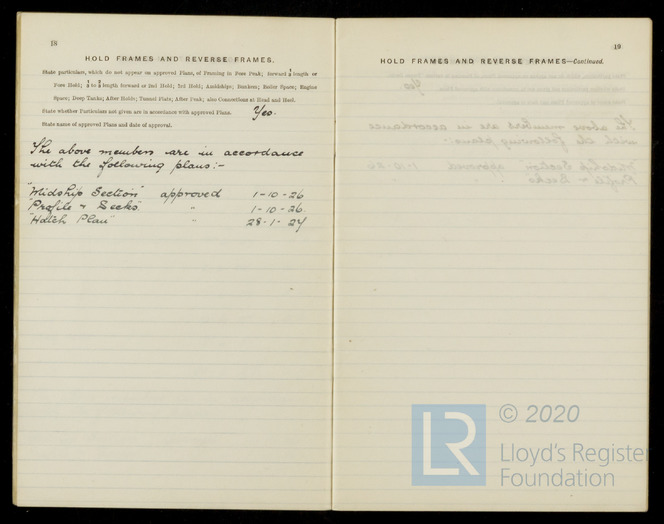 18
HOLD FRAMES AND REVERSE FRAMES.
State particulars, which do not appear on approved Plans, of Framing in Fore Peak; forward ½ length or
Fore Hold; to length forward or 2nd Hold; 3rd Hold; Amidships; Bunkers; Boiler Space; Engine
Space; Deep Tanks; After Holds; Tunnel Flats; After Peak; also Connections at Head and Heel.
State whether Particulars not given are in accordance with approved Plans. Yes.
State name of approved Plans and date of approval.
The above members are in accordance
with the following plans:-
"Midship Section" approved 1-10-26
"Profile & Decks" " 1-10-26.
"Hatch Plan" " 28-1-27
19
HOLD FRAMES AND REVERSE FRAMES—Continued.
LR
© 2020
Lloyd's Register
Foundation